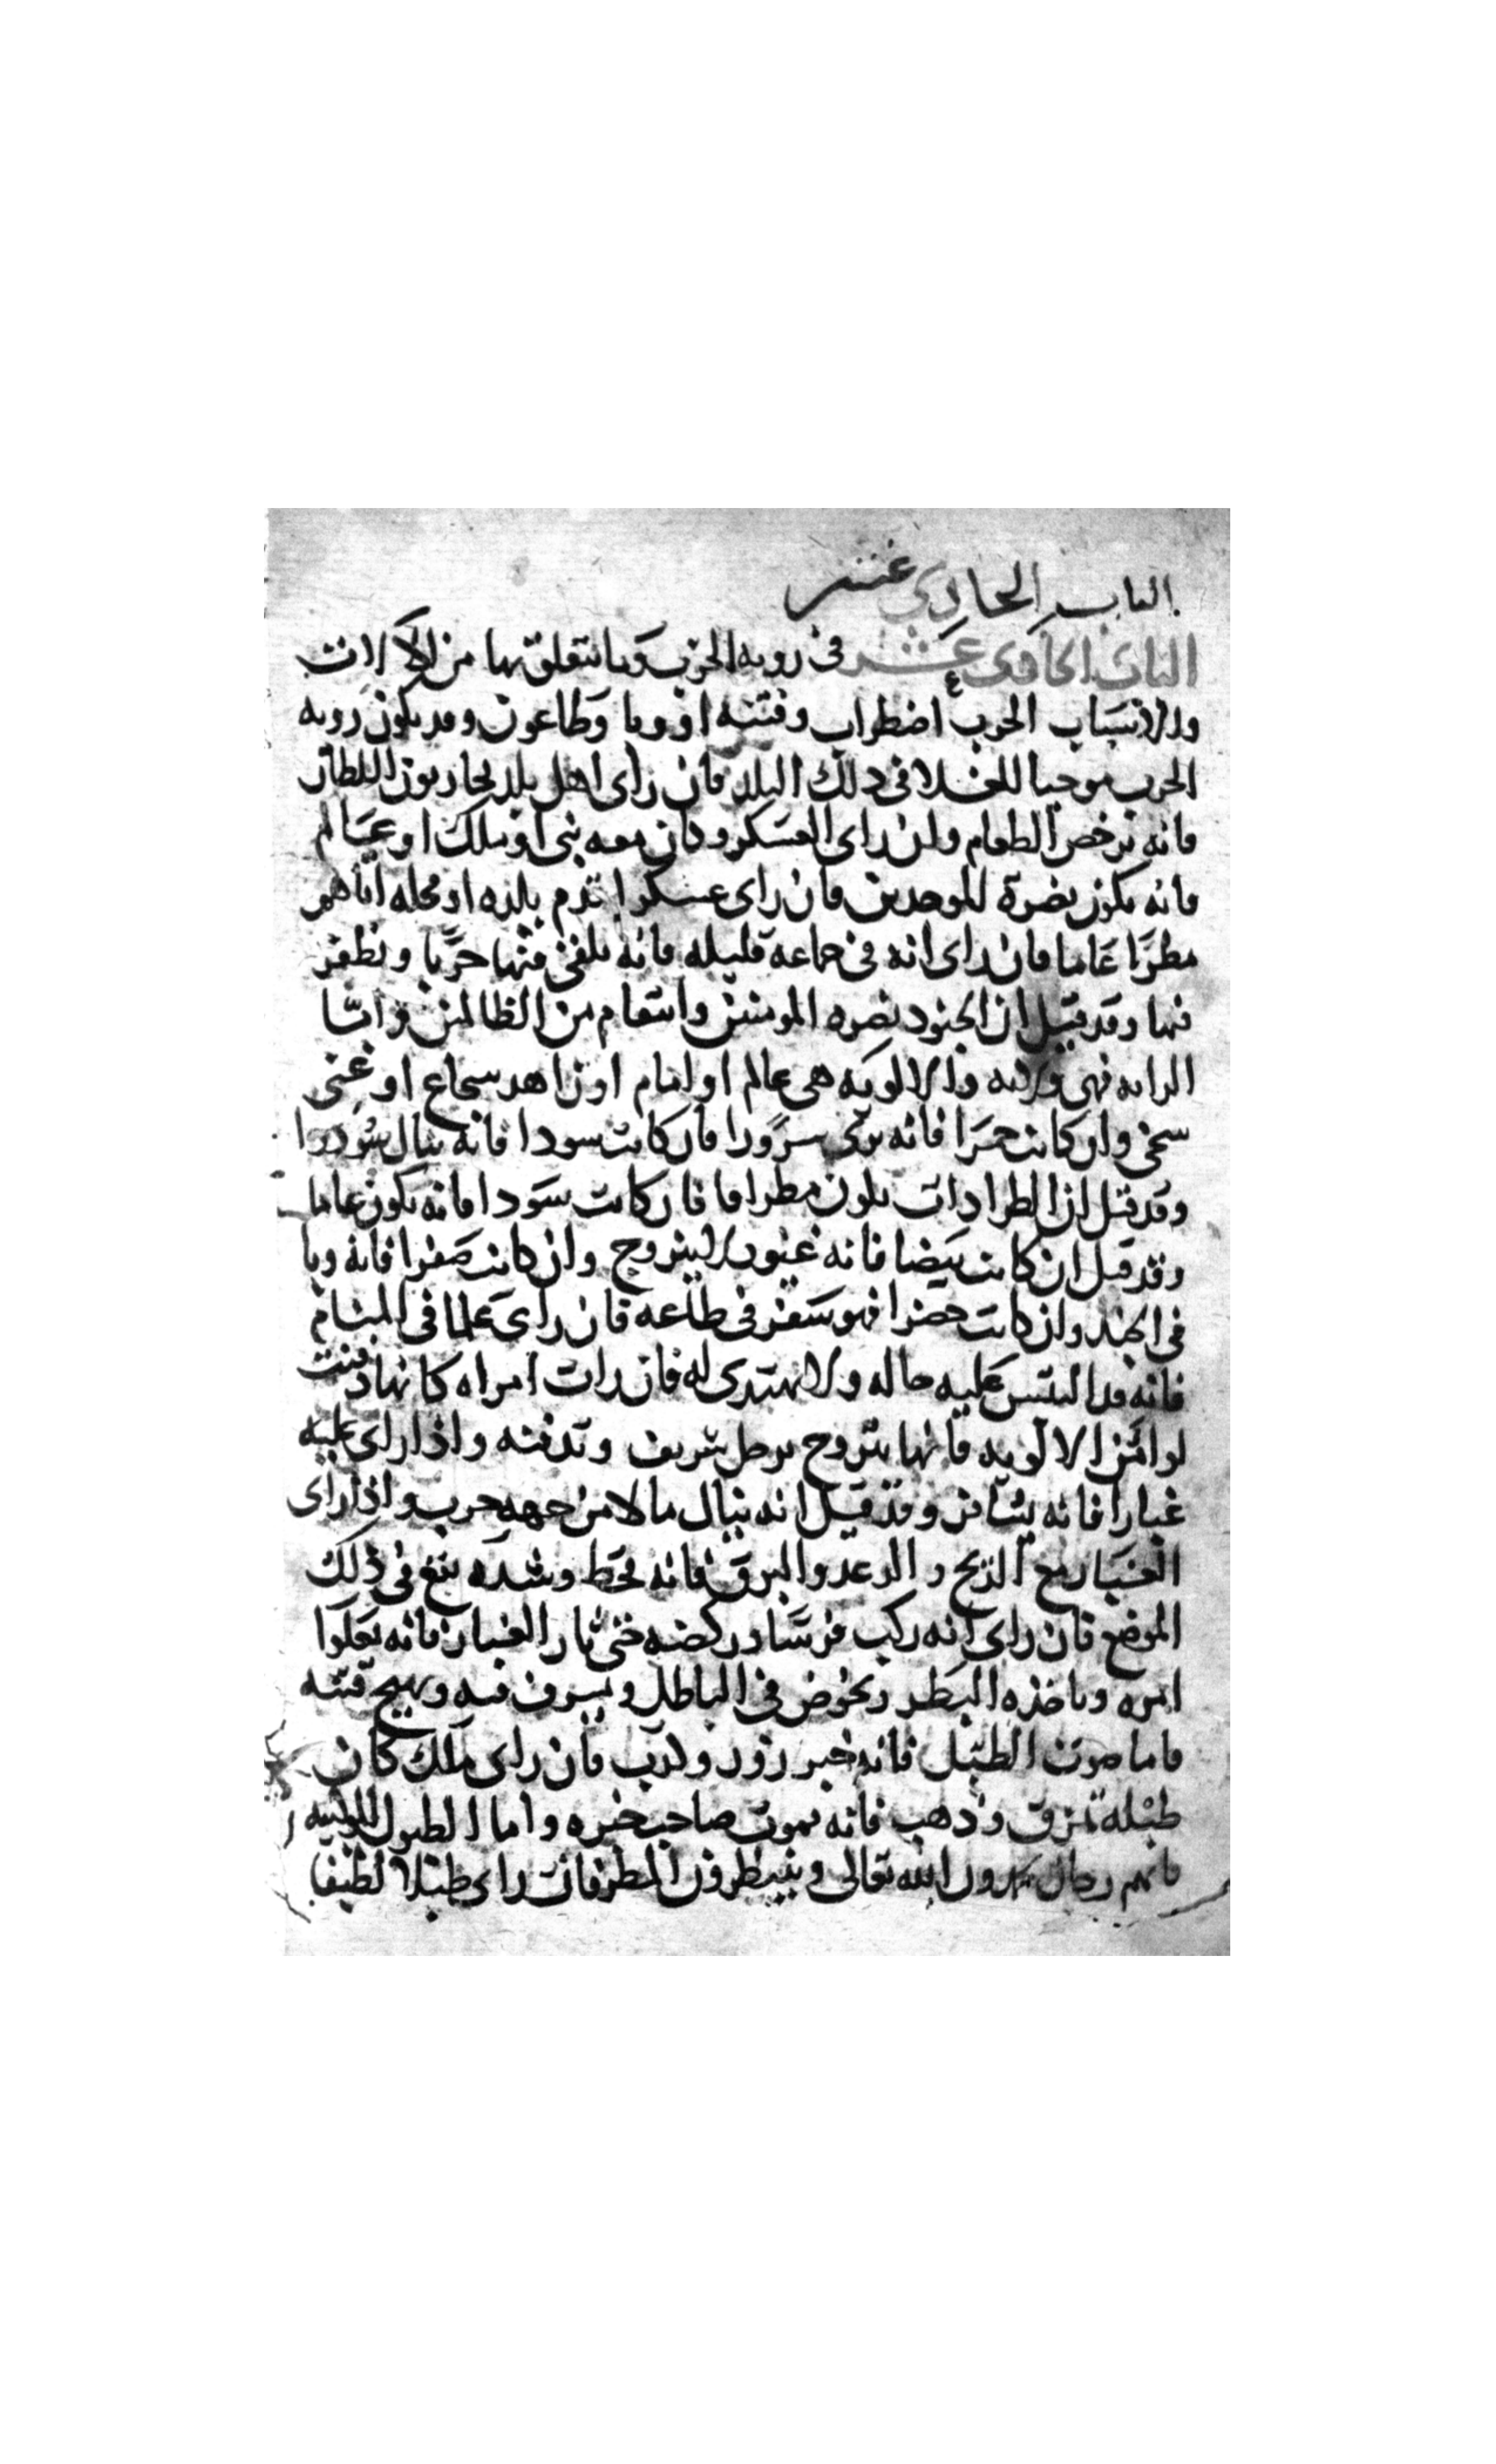 الباب الحادي عشر
الباب الحادى عشر فى رويه الحرب وما يتعلق بها من الالات
والاسباب الحرب اضطراب وفتنه او وبا وطاعون وقد يكون رويه
الحرب موجبا للغلا فى ذلك البلد فان راى اهل بلد يحاربون السلطان
فانه يرخص الطعام وان راى العسكر وكان معه نبى او ملك او عالم
فانه يكون نصرة للموحدين فان راى عسكرا تدم بلده او محله اتاهم
مطرا عاما فان راى انه فى جماعه قليله فانه يلقى فيها حربا ويظفر
فيها وقد قيل ان الجنود نصره المومنين وانتقام من الظالمين واما
الرايه فهى ولايه والالويه هى عالم او امام او زاهد شجاع او غنى
سخى وان كانت حمرا فانه يرى سرورا فان كانت سودا فانه ينال سوددا
وقد قيل ان الطرادات يكون مطرا فان كانت سودا فانه يكون عاما
وقد قيل ان كانت بيضا فانه غيور لا يتزوج وان كانت صفرا فانه وبا
فى الجند وان كانت خضرا فهو سفر فى طاعه فان راى علما فى المنام
فانه قد التبس عليه حاله ولا يهتدى له فان رات امراه كانها دفنت
لوا من الالويه فانها تتزوج برجل شريف وتدفنه واذا راى عليه
غبارا فانه يسافر وقد قيل انه ينال مالا من جهه حرب واذا راى
الغبار مع الريح والرعد والبرق فانه قحط وشده تقع فى ذلك
الموضع فان راى انه ركب فرسا وركضه حتى ثار الغبار فانه يعلوا
امره وياخذه البطر ويخوض فى الباطل ويسرف فيه ويهيج فتنه
فاما صوت الطبل فانه خبر زور وكذب فان راى ملك كان
طبله تمزق وذهب فانه يموت صاحب خبره واما الطبول
فانهم رجال الله تعالى وينتظرون المطر فان راى طبلا لطيفا